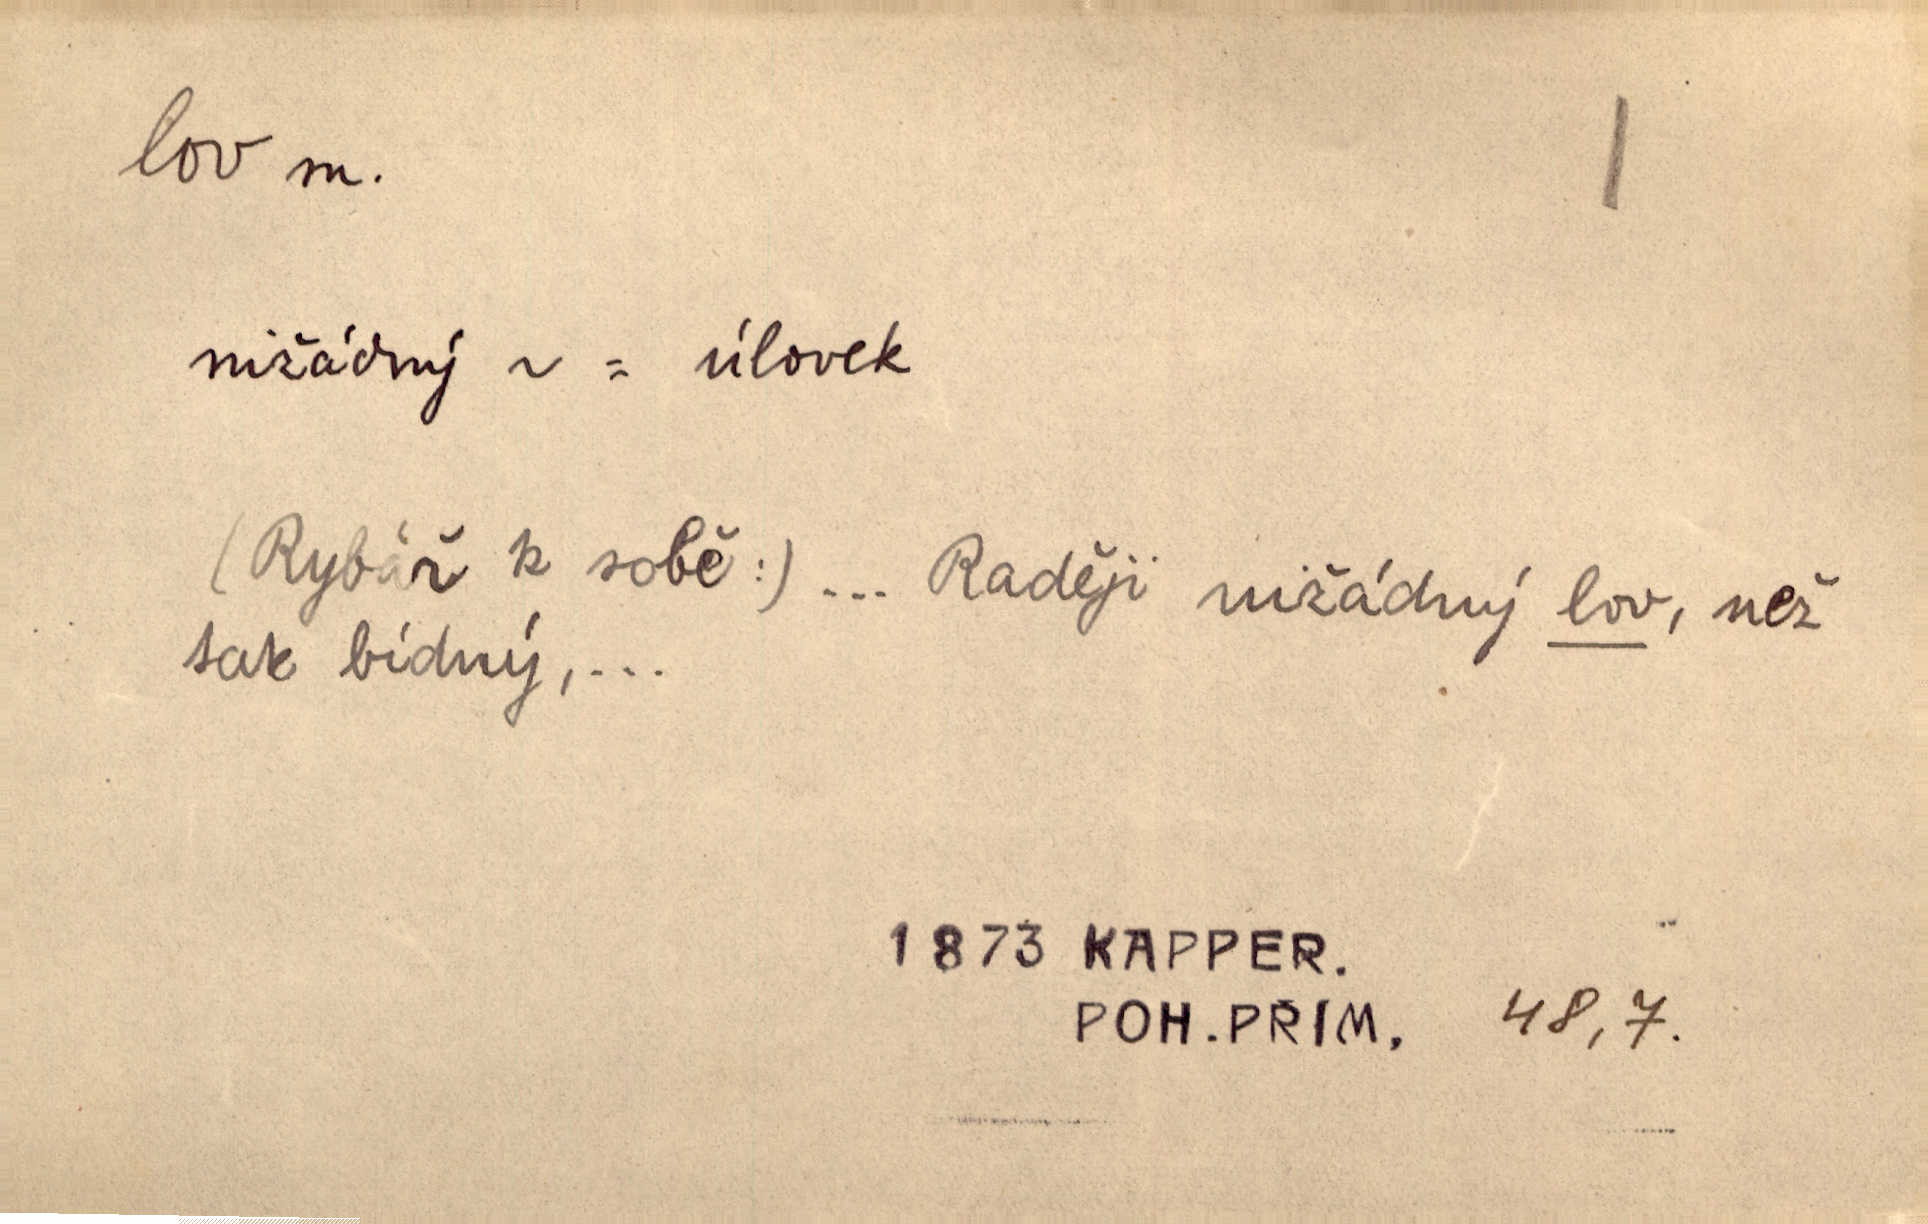 lov m.
|
nižádný ~ = úlovek
(Rybář k sobě:) ... Raději nižádný lov, než
tak bídný, ...
1873 KAPPER.
POH. PŘÍM. 48, 7.